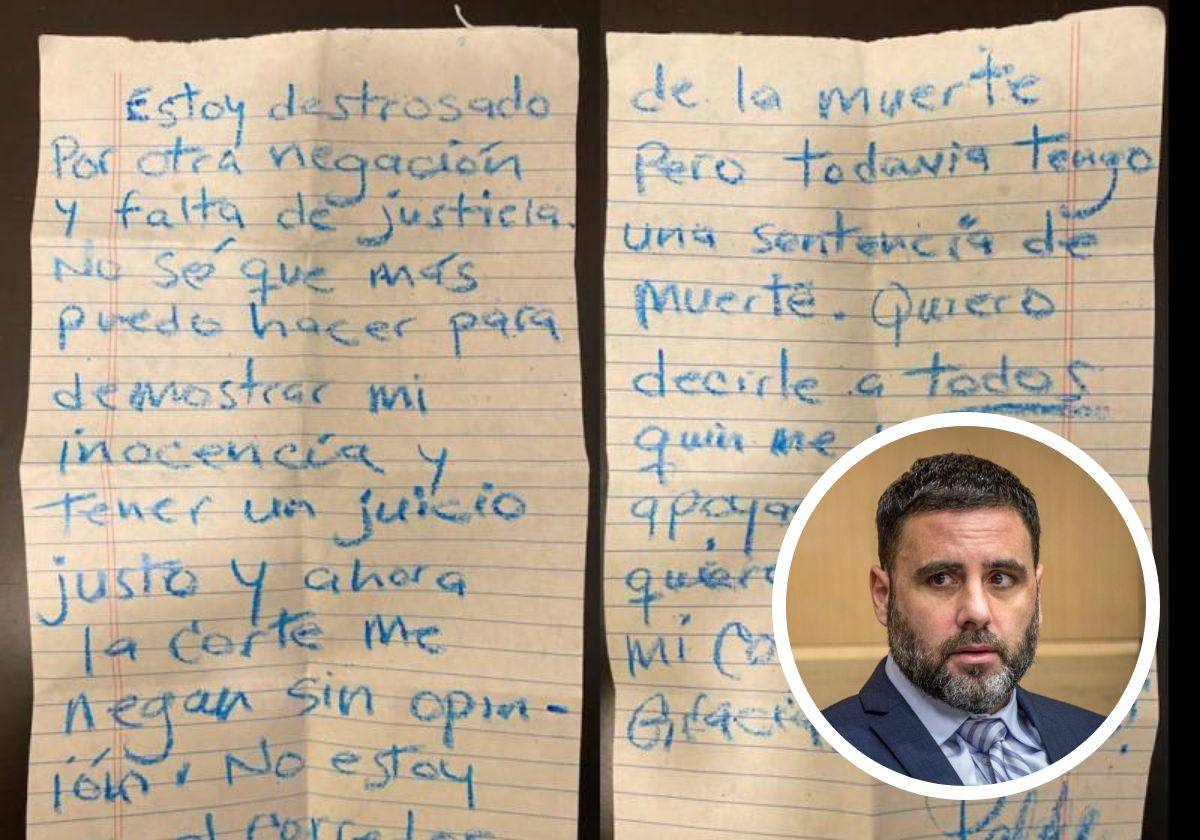 Estoy destrosado
Por otra negación
y falta de justicia.
No sé que más
puedo hacer para
demostrar mi
inocencia y
tener un juicio
justo y ahora
la corte me
negan sin opin-
ión. No estoy
el corredor
de la muerte
Pero todavia tengo
una sentencia de
muerte. Quiero
decirle a todos
quin me
apoya
quiero
mi co
Gracia